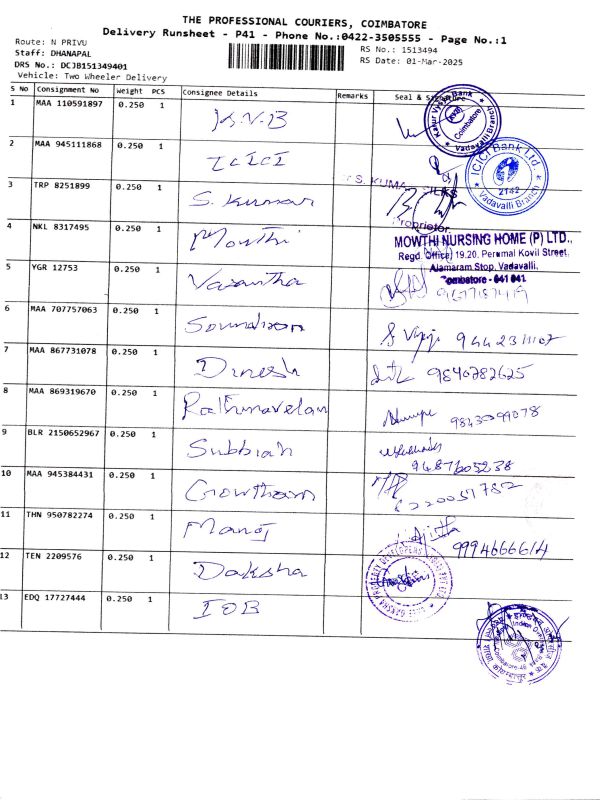 THE PROFESSIONAL COURIERS, COIMBATORE
Delivery Runsheet - P41 - Phone No.:0422-3505555 - Page No.:1
Route: N PRIVU
RS No.: 1513494
Staff: DHANAPAL
RS Date: 01-Mar-2025
DRS No.: DCJB151349401
Vehicle: Two Wheeler Delivery
S No Consignment No Weight PCS Consignee Details Remarks Seal & Signature
1 MAA 110591897 0.250 1 K.V.B
Karur Vysya Bank
Coimbatore
Vadavalli Branch
2 MAA 945111868 0.250 1 ICICI
ICICI Bank Ltd
2142
Vadavalli Branch
3 TRP 8251899 0.250 1 S. Kumar
Proprietor
4 NKL 8317495 0.250 1 Mowthi
MOWTHI NURSING HOME (P) LTD.,
Regd. Office: 19,20, Perumal Kovil Street,
Alamaram Stop, Vadavalli,
Coimbatore - 641 041
5 YGR 12753 0.250 1 Vasantha
6 MAA 707757063 0.250 1
7 MAA 867731078 0.250 1 Dinesh 9840782625
8 MAA 869319670 0.250 1 Rathinavelan 9843099078
9 BLR 2150652967 0.250 1 Subbiah
9487605238
10 MAA 945384431 0.250 1 Gowtham
11 THN 950782274 0.250 1 Manoj
9994666614
12 TEN 2209576 0.250 1 Daksha
13 EDQ 17727444 0.250 1 IOB